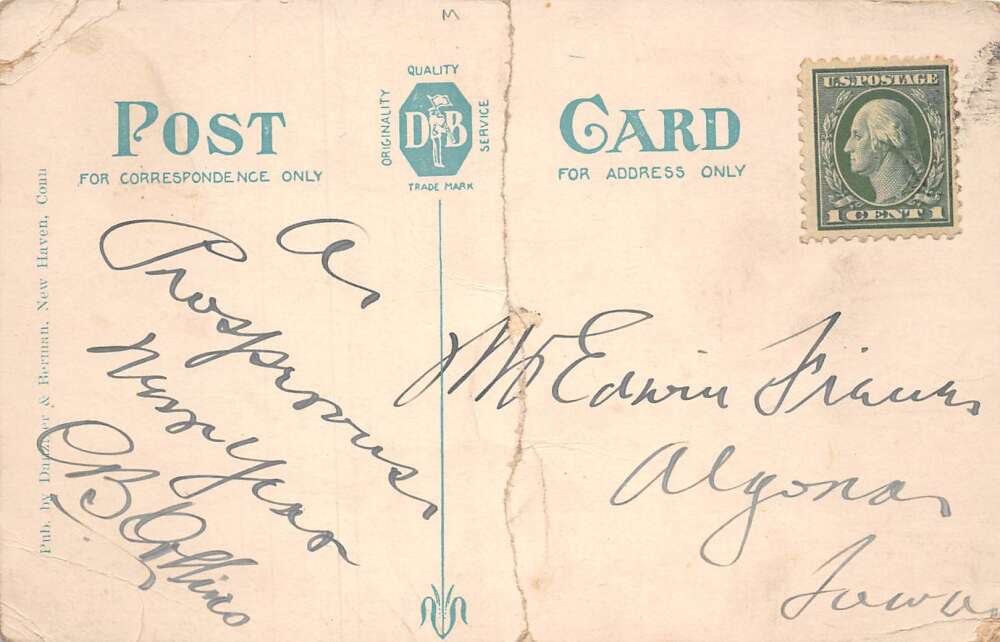 M
POST CARD
FOR CORRESPONDENCE ONLY
FOR ADDRESS ONLY
QUALITY
ORIGINALITY
SERVICE
D B
TRADE MARK
U.S. POSTAGE
1 CENT 1
Pub. by Danziger & Berman, New Haven, Conn
A
Prosperous
New Year
CB Collins
Mr Edwin
Algona
Iowa